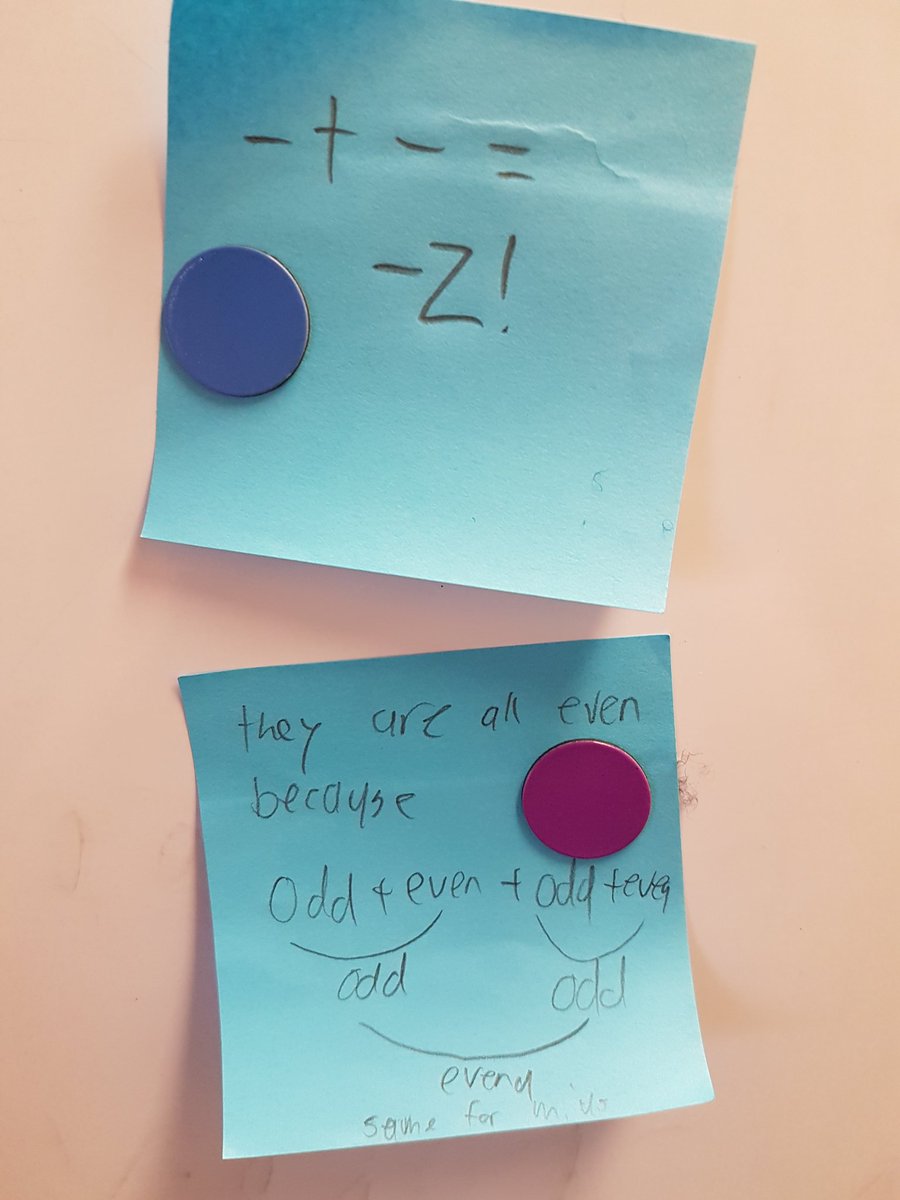 - + - =
-2!
they are all even
because
odd + even + odd + even
odd odd
even
same for